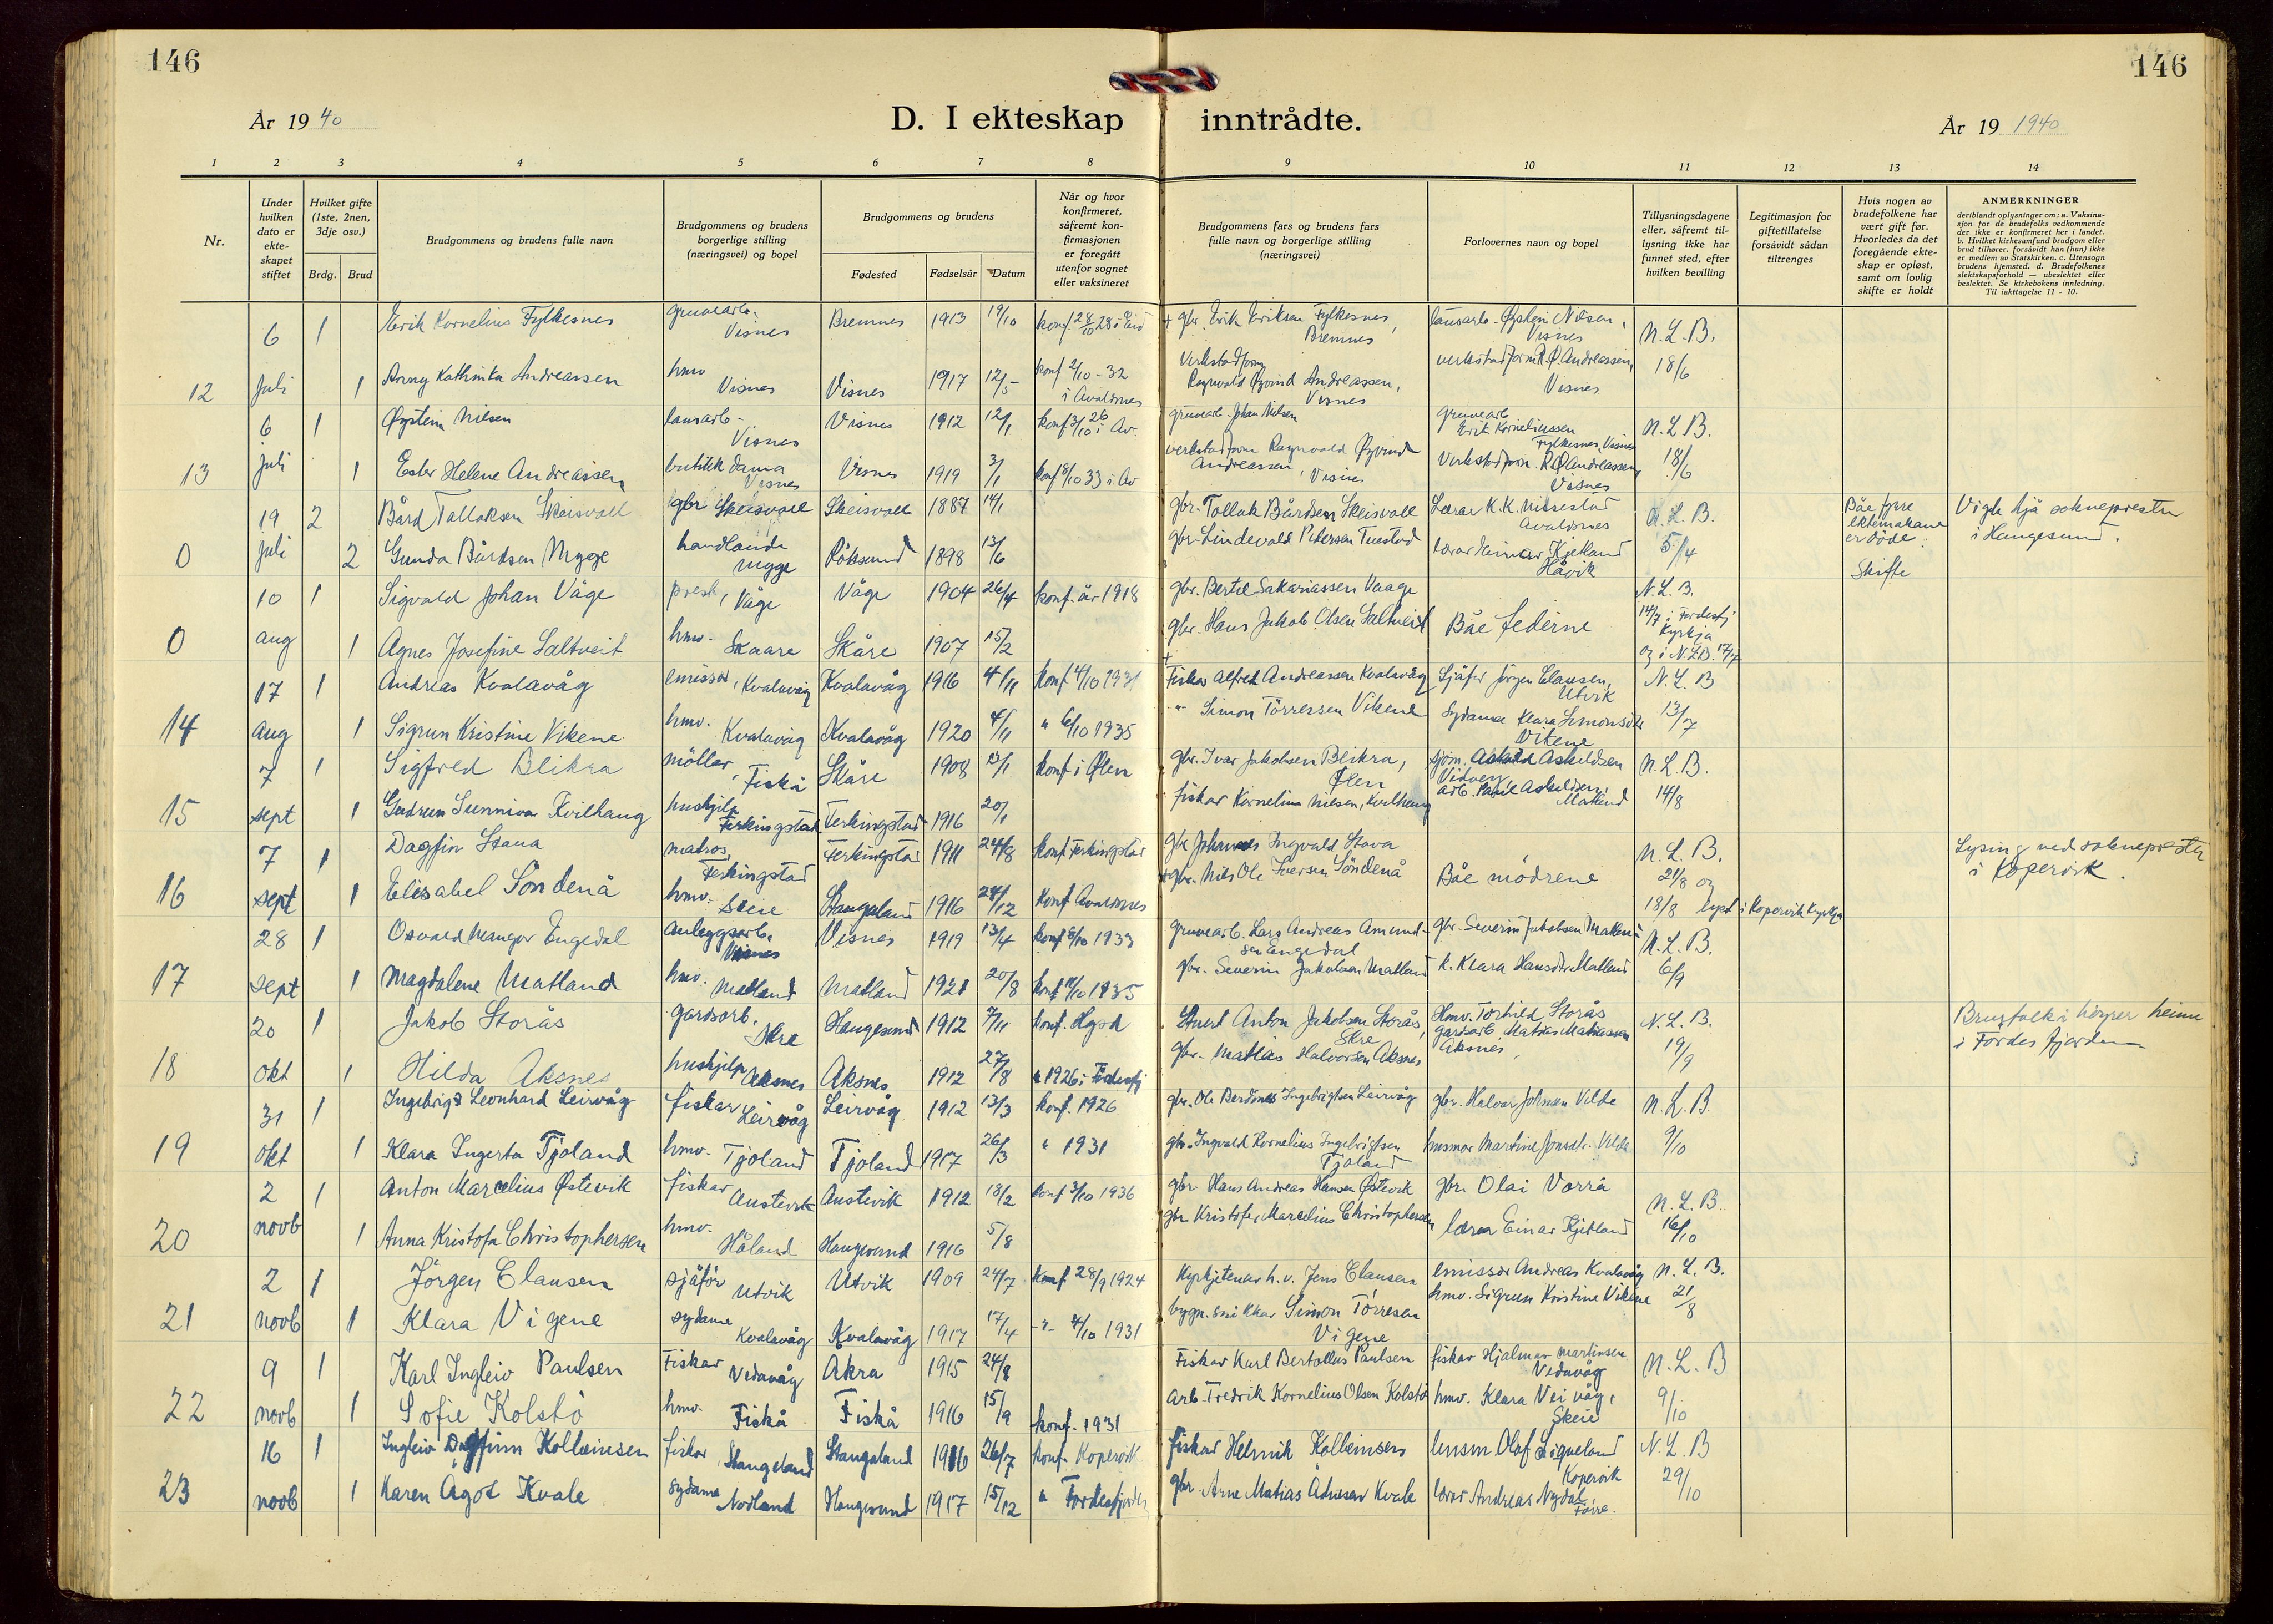 146
146
År 19 40
D. I ekteskap inntrådte.
År 19 1940
1 2 3 4 5 6 7 8 9 10 11 12 13 14
Nr.
Under hvilken dato er ekte-skapet stiftet
Hvilket gifte (1ste, 2nen, 3dje osv.)
Brdg. Brud
Brudgommens og brudens fulle navn
Brudgommens og brudens borgerlige stilling (næringsvei) og bopel
Brudgommens og brudens
Fødested Fødselsår Datum
Når og hvor konfirmeret, såfremt kon-firmasjonen er foregått utenfor sognet eller vaksineret
Brudgommens fars og brudens fars fulle navn og borgerlige stilling (næringsvei)
Forlovernes navn og bopel
Tillysningsdagene eller, såfremt til-lysning ikke har funnet sted, efter hvilken bevilling
Legitimasjon for giftetillatelse forsåvidt sådan tiltrenges
Hvis nogen av brudefolkene har vært gift før. Hvorledes da det foregående ekte-skap er opløst, samt om lovlig skifte er holdt
ANMERKNINGER
deriblandt oplysninger om: a. Vaksina-sjon for de brudefolks vedkommende der ikke er konfirmeret her i landet. b. Hvilket kirkesamfund brudgom eller brud tilhører, forsåvidt han (hun) ikke er medlem av Statskirken. c. Utensogn brudens hjemsted. d. Brudefolkenes slektskapsforhold — ubeslektet eller beslektet. Se kirkebokens innledning. Til iakttagelse 11 - 10.
6 1 Erik Kornelius Fylkesnes gruvearb. Visnes Bremnes 1913 19/10 konf 28/10 28 i Eid + gbr. Erik Eriksen Fylkesnes, Bremnes lausarb. Øystein Nilsen, Visnes N.L.B.
12 juli 1 Anny Kathinka Andreassen hmv Visnes Visnes 1917 12/5 konf 2/10-32 i Avaldsnes Verkstadform Ragnvald Øyvind Andreassen, Visnes verkstadform R.Ø Andreassen, Visnes 18/6
6 1 Øystein Nilsen lausarb- Visnes Visnes 1912 12/1 konf 3/10 26 i Av. gruvearb. Johan Nilsen gruvearb Erik Korneliussen Fylkesnes, Visnes N.L.B.
13 juli 1 Ester Helene Andreassen butikkdama Visnes Visnes 1919 3/1 konf 8/10 33 i Av verkstadform Ragnvald Øyvind Andreassen, Visnes Verkstadform. R Ø Andreassen, Visnes 18/6
19 2 Bård Tollaksen Skeisvoll gbr Skeisvoll Skeisvoll 1887 14/1 gbr. Tollak Bårdsen Skeisvoll Lærar K.K. Avaldsnes N.L.B. Båe fyrre ektemakane er døde. Vigde hjå soknepresten i Haugesund.
0 juli 2 Gunda Bårdsen Mygge handlande Mygge Røksund 1898 13/6 gbr Lindevald Pedersen Tuestad lærar Einar Kjetland Håvik 5/4 Skifte
10 1 Sigvald Johan Våge prest, Våge Våge 1904 26/4 konf. år 1918 gbr. Bertel Sakariassen Vaage N.L.B.
0 aug 1 Agnes Josefine Saltveit hmv. Skaare Skåre 1907 15/2 gbr. Hans Jakob Olsen Saltveit Båe federne 14/7 i Fordesfj Kyrkja og i N.L.B. 17/7
17 1 Andreas Kvalavåg emissær, Kvalavåg Kvalavåg 1916 4/11 konf 4/10 1931 + Fiskar Alfred Andreassen Kvalavåg Sjåfør Jørgen Clausen, Utvik N.L.B
14 aug 1 Sigrun Kristine Vikene hmv. Kvalavåg Kvalavåg 1920 4/11 " 6/10 1935 " Simon Tørressen Vikene Sydama Klara Simonsdtr Vikene 13/7
7 1 Sigfred Blikra møllar, Fiskå Skåre 1908 13/1 konf i Ølen gbr. Ivar Jakobsen Blikra, Ølen sjøm. Askild Askeldsen Vidvey N.L.B.
15 sept 1 Gudrun Sunniva Kvilhaug hushjelp Ferkingstad Ferkingstad 1916 20/1 fiskar Kornelius Nilsen, Kvilhaug arb. Askeldsen, Matland 14/8
7 1 Dagfin Stava matros, Ferkingstad Ferkingstad 1911 24/8 konf Ferkingstad gbr Johannes Ingvald Stava N.L.B. Lysing ved soknepresten i Kopervik.
16 sept 1 Elisabel Søndenå hmv. Skeie Stangeland 1916 24/12 Konf Avaldsnes + gbr. Nils Ole Iversen Søndenå Båe mødrene 21/8 og 18/8 lyst i Kopervik Kyrkja
28 1 Osvald Mangor Engedal anleggsarb. Visnes Visnes 1919 13/4 konf 8/10 1933 gruvearb. Lars Andreas Amund-sen Engedal gbr. Severin Jakobsen Matland N.L.B.
17 sept 1 Magdalene Matland hmv. Matland Matland 1921 20/8 konf 1935 gbr. Severin Jakobsen Matland k. Klara Hansdtr Matland 6/9
20 1 Jakob Storås gardsarb. Skre Haugesund 1912 7/11 konf. Hgsd Stuert Anton Jakobsen Storås, Skre Hmv. Torhild Storås N.L.B. Brurfolki høyrer heime i Førdesfjorden
18 okt 1 Hilda Aksnes hushjelp Aksnes Aksnes 1912 27/8 " 1926 i Førdesfj gbr. Matias Halvorsen Aksnes gardsarb Matias Matiassen Aksnes, 19/9
31 1 Ingebrigt Leonhard Leirvåg fiskar Leirvåg Leirvåg 1912 13/3 konf. 1926 gbr. Ole Berdines Ingebrigtsen Leirvåg gbr. Halvor Johnsen Velde N.L.B.
19 okt 1 Klara Ingerta Tjoland hmv. Tjoland Tjoland 1917 26/3 " 1931 gbr. Ingvald Kornelius Ingebrigtsen Tjoland husmor Martine Jonsdtr. Velde 9/10
2 1 Anton Marcelius Østevik fiskar Austevik Austevik 1912 18/2 konf 3/10 1936 gbr. Hans Andreas Hansen Østevik gbr. Olai Vorrå N.L.B.
20 novb 1 Anna Kristofa Christophersen hmv. Håland Haugesund 1916 5/8 gbr Kristofer Marcelius Christophersen lærar Einar Kjetland 16/10
2 1 Jörgen Clausen sjåfør Utvik Utvik 1909 24/7 konf 28/9 1924 Kyrkjetenar h.v. Jens Clausen emissær Andreas Kvalavåg N.L.B.
21 novb 1 Klara Vigene sydame Kvalavåg Kvalavåg 1917 17/4 -"- 4/10 1931 bygn.snikkar Simon Tørresen Vigene hmv. Sigrun Kristine Vikene 21/8
9 1 Karl Ingleiv Paulsen Fiskar Vedavåg Akra 1915 24/8 Fiskar Karl Bertollus Paulsen fiskar Hjalmar Martinsen Vedavåg N.L.B
22 novb 1 Sofie Kolstö hmv. Fiskå Fiskå 1916 15/9 konf. 1931 Arb. Fredrik Kornelius Olsen Kolstö hmv. Klara Vei våg, Skeie 9/10
16 1 Ingleiv Dagfinn Kolbeinsen fiskar, Stangeland Stangaland 1916 26/7 konf. Kopervik fiskar Helmik Kolbeinsen lensm. Olaf Liqueland Kopervik N.L.B
23 novb 1 Karen Ågot Kvale sydame Nodland Haugesund 1917 15/12 " Førdesfjorden gbr Arne MatiasÅdnesen Kvale lærar Andreas Nydal Førre. 29/10